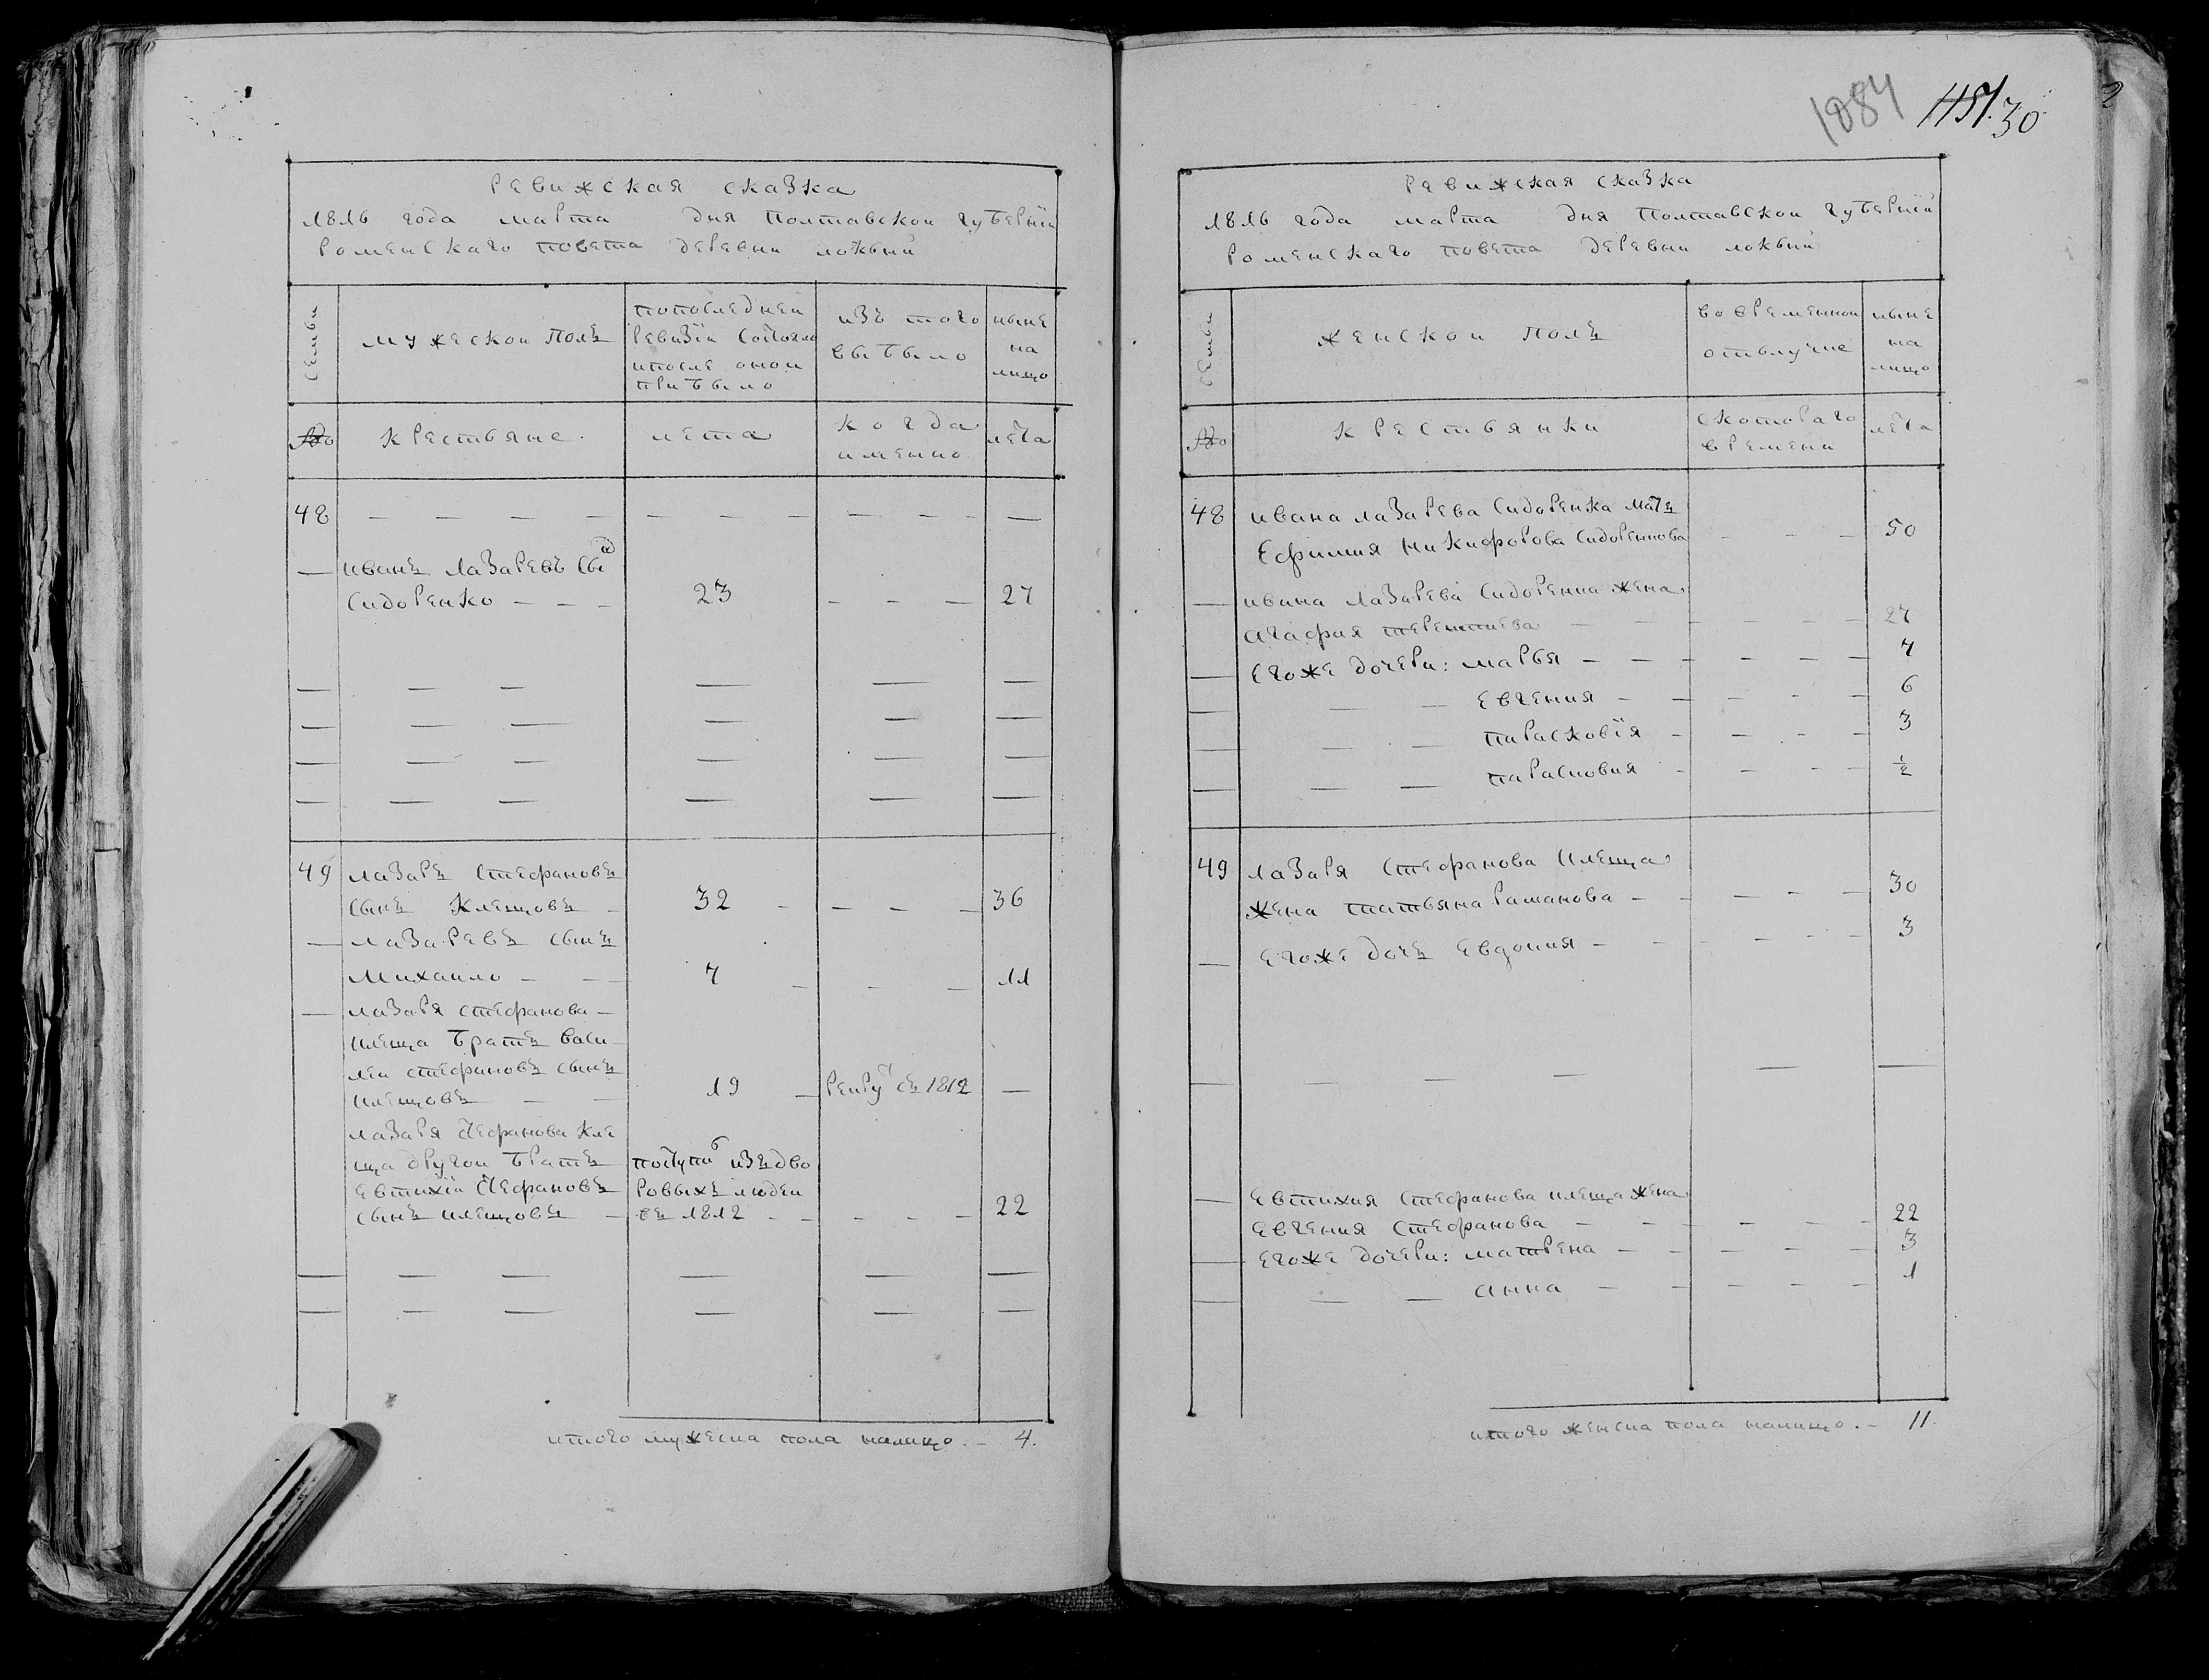 Ревижская сказка
1816 года марта дня Полтавской губернїи
Роменскаго повета деревни локъни
семьи
мужеской полъ
попоследней
ревизїи состояло
ипосле оной
прибыло
изъ того
выбыло
ныне
на
лицо
№
крестьяне
лета
когда
именно
лета
48
иванъ Лазаревъ сынъ
Сидоренко 23 27
49 лазарь Стефановъ
сынъ Клещовъ 32 36
лазаревъ сынъ
Михаило 7 11
лазаря стефанова
клеща братъ васи
леи стефановъ сынъ
клещовъ 19 рекру съ 1812
лазаря стефанова кле
ща другои братъ поступи изъ дво
евтихїи стефановъ ровыхъ людеи
сынъ клещовъ въ 1812 22
итого мужеска пола налицо. 4.
1084 1151. 30
Ревижская сказка
1816 года марта дня Полтавской губернїи
Роменскаго повета деревни локъни
семьи
женской полъ
во временной
отлучке
ныне
на
лицо
№
крестьянки
скотораго
времени
лета
48 ивана лазарева Сидоренка мать
Ефимия Никифорова Сидоренкова 50
ивана лазарева Сидоренка жена
агафия терентиева 27
егоже дочери: марья 7
евгения 6
парасковїя 3
парасковия ½
49 лазаря Стефанова клеща
жена татьяна Романова 30
егоже дочь евдокия 3
евтихия стефанова клеща жена
евгения стефанова 22
егоже дочери: матрена 3
анна 1
итого женска пола налицо. 11.